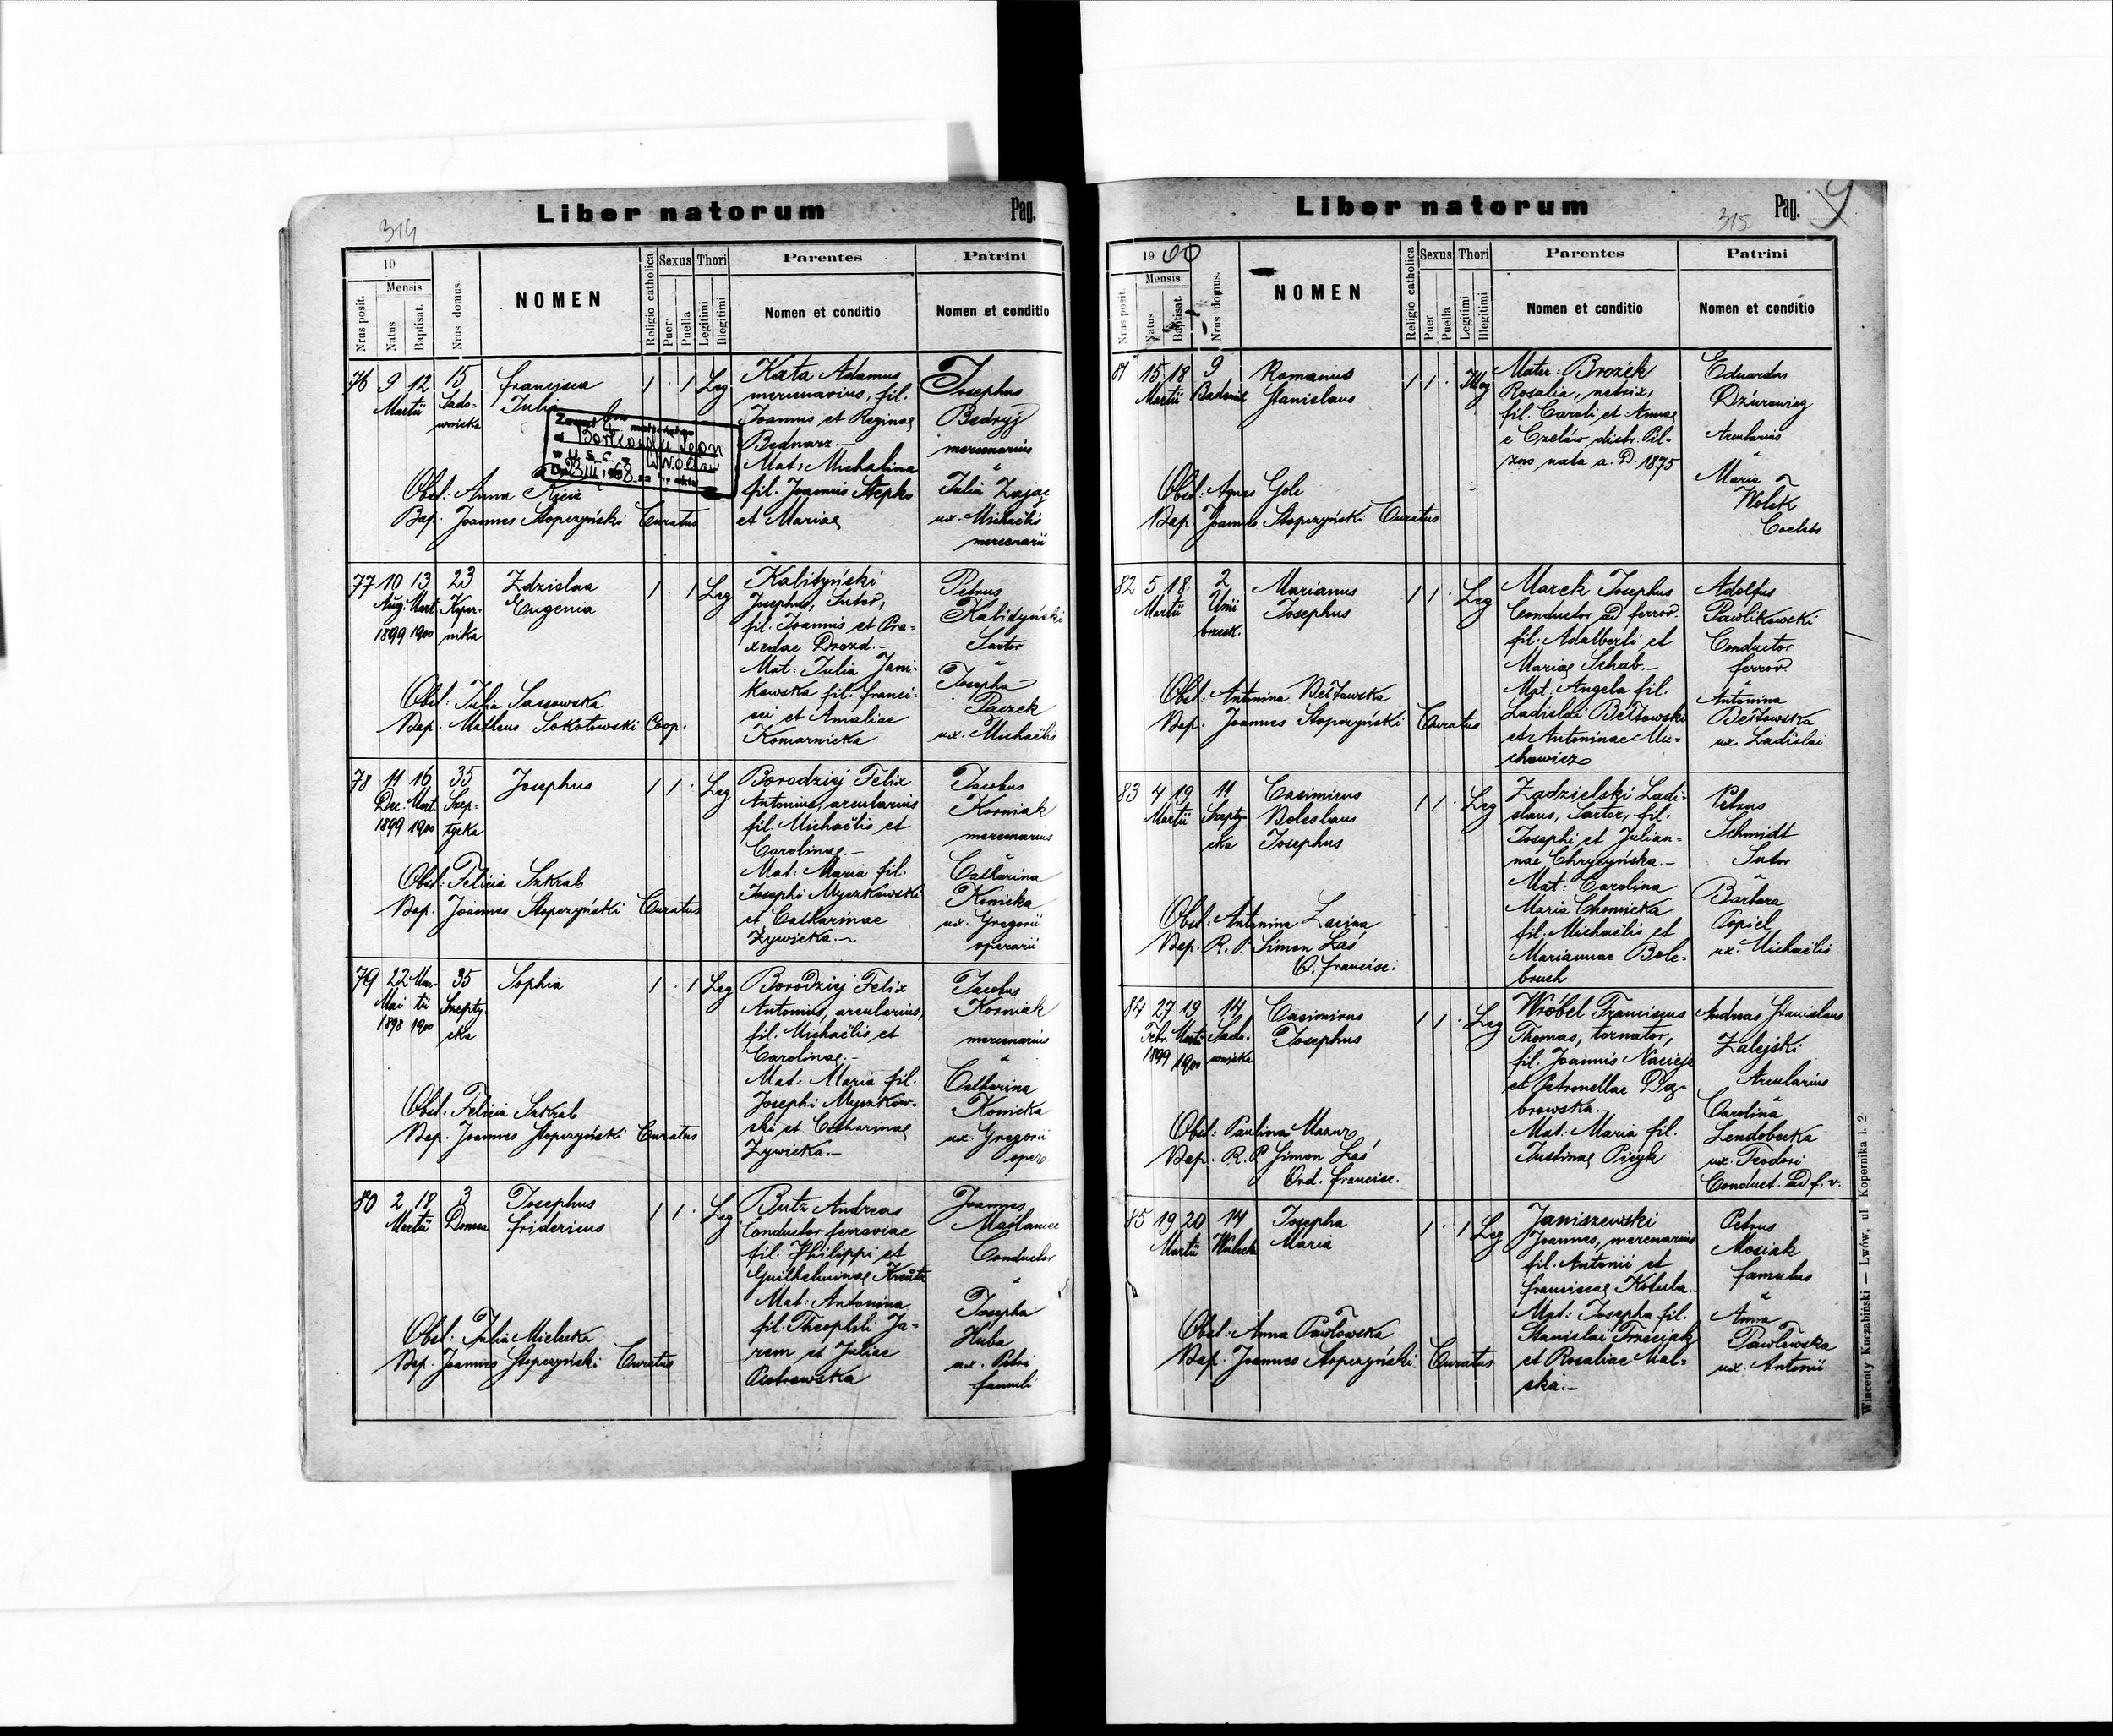 314
Liber natorum
Pag.
19
Mensis
Nrus posit.
Natus
Baptisat.
Nrus domus.
NOMEN
Religio catholica
Sexus
Puer
Puella
Thori
Legitimi
Illegitimi
Parentes
Nomen et conditio
Patrini
Nomen et conditio
76 9 12 Martii 15 Sado-
wnicka
Francisca
Julia
1 . 1 Leg
Kata Adamus
mercenarius, fil.
Joannis et Reginae
Bednarz.-
Mat: Michalina
fil. Joannis Stepko
et Mariae
Josephus
Bedryj
mercenarius
"
Julia Zając
ux. Michaëlis
mercenarii
Leon
U.S.C.
23 III 68
Obst: Anna
Bap. Joannes Stopczyński Curatus
77 10 13 23
Aug. Mart. Koper-
1899 1900 nika
Zdzislaa
Eugenia
1 . 1 Leg
Kalityński
Josephus, Sutor,
fil. Joannis et Pra-
xedae Drozd.-
Mat: Julia Jani-
kowska fil. Franci-
sci et Amaliae
Komarnicka
Petrus
Kalityński
Sartor
"
Josepha
Paczek
ux. Michaëlis
Obst. Julia Sassowska
Bap. Matheus Sokołowski Coop.
78 11 16 35
Dec. Mart. Szep-
1899 1900 tycka
Josephus
1 1 . Leg
Borodziej Felix
Antonius, arcularius
fil. Michaëlis et
Carolinae.-
Mat: Maria fil.
Josephi Myszkowski
et Catharinae
Żywicka.-
Jacobus
Korniak
mercenarius
"
Catharina
Konicka
ux. Gregorii
operarii
Obst: Felicia Szkrab
Bap. Joannes Stopczyński Curatus
79 22 Mar- 35
Mai tii Szepty-
1898 1900 cka
Sophia
1 . 1 Leg
Borodziej Felix
Antonius, arcularius,
fil. Michaëlis et
Carolinae.-
Mat: Maria fil.
Josephi Myszkow-
ski et Catharinae
Żywicka.-
Jacobus
Korniak
mercenarius
"
Catharina
Konicka
ux. Gregorii
oper
Obst: Felicia Szkrab
Bap. Joannes Stopczyński Curatus
80 2 18 Martii 3
Josephus
Fridericus
1 1 . Leg
Butz Andreas
Conductor ferroviae
fil. Philippi et
Guilhelminae Kreutz
Mat: Antonina
fil. Theophili Ja-
rem et Juliae
Piotrowska
Joannes
Maślaniec
Conductor
"
Josepha
Huba
ux. Petri
famuli
Obst: Julia Mielecka
Bap. Joannes Stopczyński Curatus
Liber natorum
315
Pag.
1900
Mensis
Nrus posit.
Natus
Baptisat.
Nrus domus.
NOMEN
Religio catholica
Sexus
Puer
Puella
Thori
Legitimi
Illegitimi
Parentes
Nomen et conditio
Patrini
Nomen et conditio
81 15 18 Martii 9
Romanus
Stanislaus
1 1 . Illeg
Mater: Brożek
Rosalia, netrix,
fil. Caroli et Annae
e Czelów distr. Pil-
zno nata a. D. 1875
Eduardus
Arcularius
"
Maria
Wołek
Coelebs
Obst: Agnes Gole
Bap. Joannes Stopczyński Curatus
82 5 18 Martii 2 Unii
brzesk.
Marianus
Josephus
1 1 . Leg
Marek Josephus
Conductor ad ferrov.
fil. Adalberti et
Mariae Schab.-
Mat: Angela fil.
Ladislai Bełtowski
et Antoninae Mu-
chowicz
Adolfus
Pawlikowski
Conductor
ferrov.
"
Antonina
Bełtowska
ux. Ladislai
Obst: Antonina Bełtowska
Bap. Joannes Stopczyński Curatus
83 4 19 Martii 11 Szepty-
cka
Casimirus
Boleslaus
Josephus
1 1 . Leg
Zadzielski Ladi-
slaus, Sartor, fil.
Josephi et Julian-
nae Chryzyńska.-
Mat: Carolina
Maria Chomicka
fil. Michaëlis et
Mariannae Bole-
bruch
Petrus
Schmidt
Sutor
"
Barbara
Popiel
ux. Michaëlis
Obst: Antonina Lacina
Bap. R. P. Simon Łaś
O. Francisc.
84 27 19 14
Febr. Martii Sado-
1899 1900 wnicka
Casimirus
Josephus
1 1 . Leg
Wróbel Franciscus
Thomas, tornator,
fil. Joannis
et Petronellae Dą-
browska.-
Mat: Maria fil.
Justinae Picyk
Andreas Stanislaus
Zalejski
Arcularius
"
Carolina
Lendobecka
ux. Teodori
Conduct. ad f. v.
Obst: Paulina Mazur
Bap. R. P. Simon Łaś
Ord. Francisc.
85 19 20 Martii 14
Josepha
Maria
1 . 1 Leg
Janiszewski
Joannes, mercenarius
fil. Antonii et
Franciscae Kotula.-
Mat: Josepha fil.
Stanislai Trześcjak
et Rosaliae Mal-
ska.-
Petrus
Mosiak
famulus
"
Anna
Pawłowska
ux. Antonii
Obst: Anna Pawłowska
Bap. Joannes Stopczyński Curatus
Wincenty Kuczabiński — Lwów, ul. Kopernika l. 2